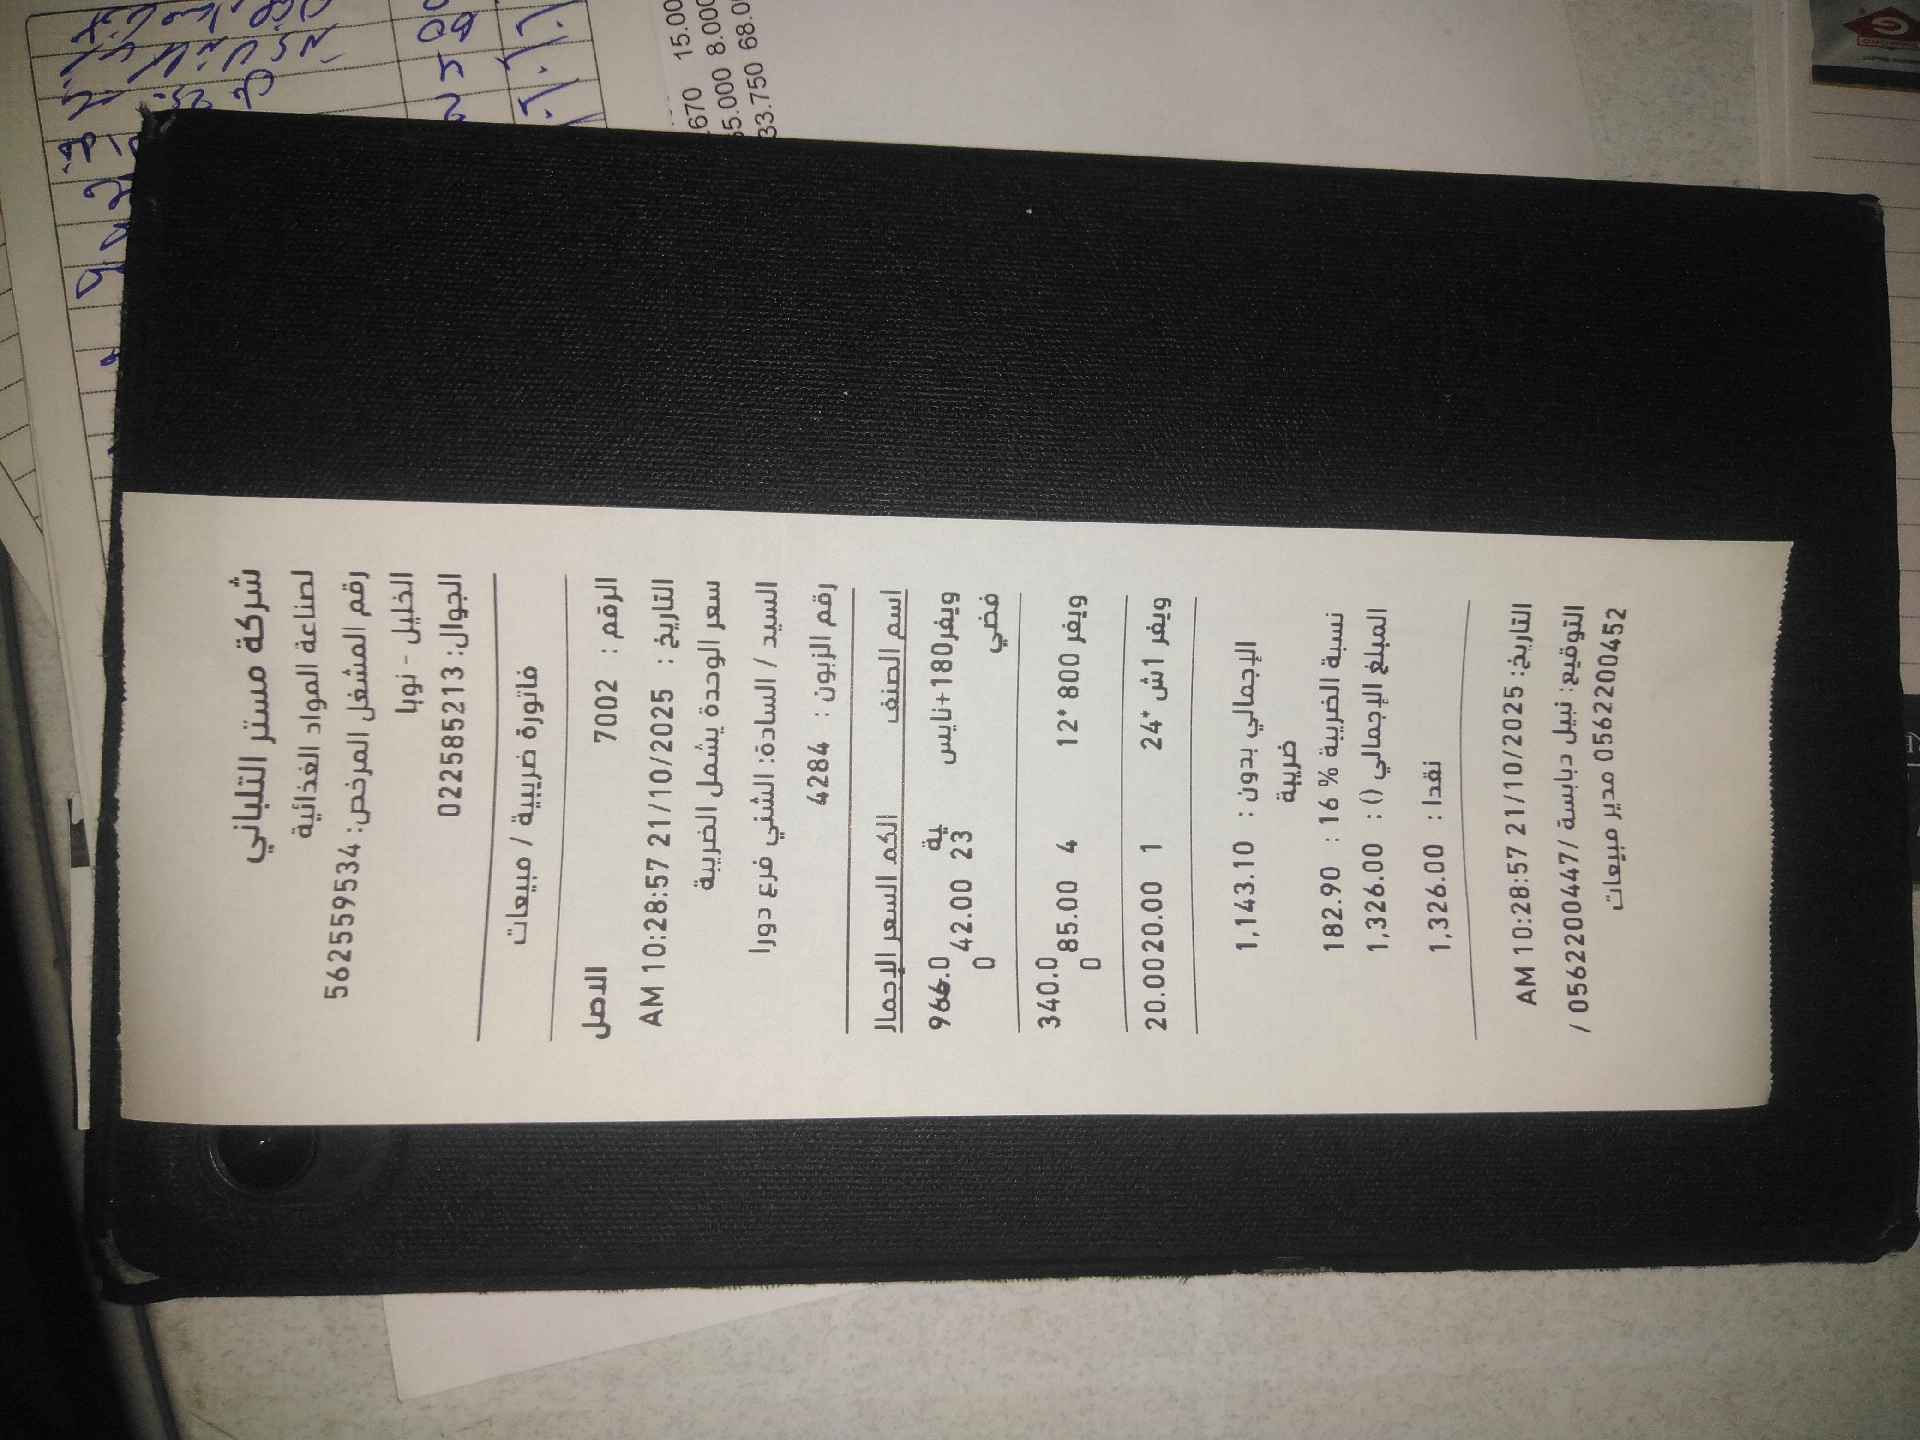 شركة مستر التلباني
لصناعة المواد الغذائية
رقم المشغل المرخص: 562559534
الخليل - نوبا
الجوال: 022585213
فاتورة ضريبية / مبيعات
الرقم : 7002 الاصل
التاريخ : 21/10/2025 10:28:57 AM
سعر الوحدة يشمل الضريبة
السيد / السادة: الشني فرع دورا
رقم الزبون : 4284
اسم الصنف الكم السعر الاجمال
ويفر180+نايس ية 966.0
23 42.00
فضي 0
ويفر 800 *12 4 85.00 340.0
0
ويفر 1ش *24 1 20.00 20.00
الإجمالي بدون : 1,143.10
ضريبة
نسبة الضريبة % 16 : 182.90
المبلغ الإجمالي () : 1,326.00
نقدا : 1,326.00
التاريخ: 21/10/2025 10:28:57 AM
التوقيع: نبيل دبابسة /0562200447 /
0562200452 مدير مبيعات
670 15.00
55.000 8.000
33.750 68.0